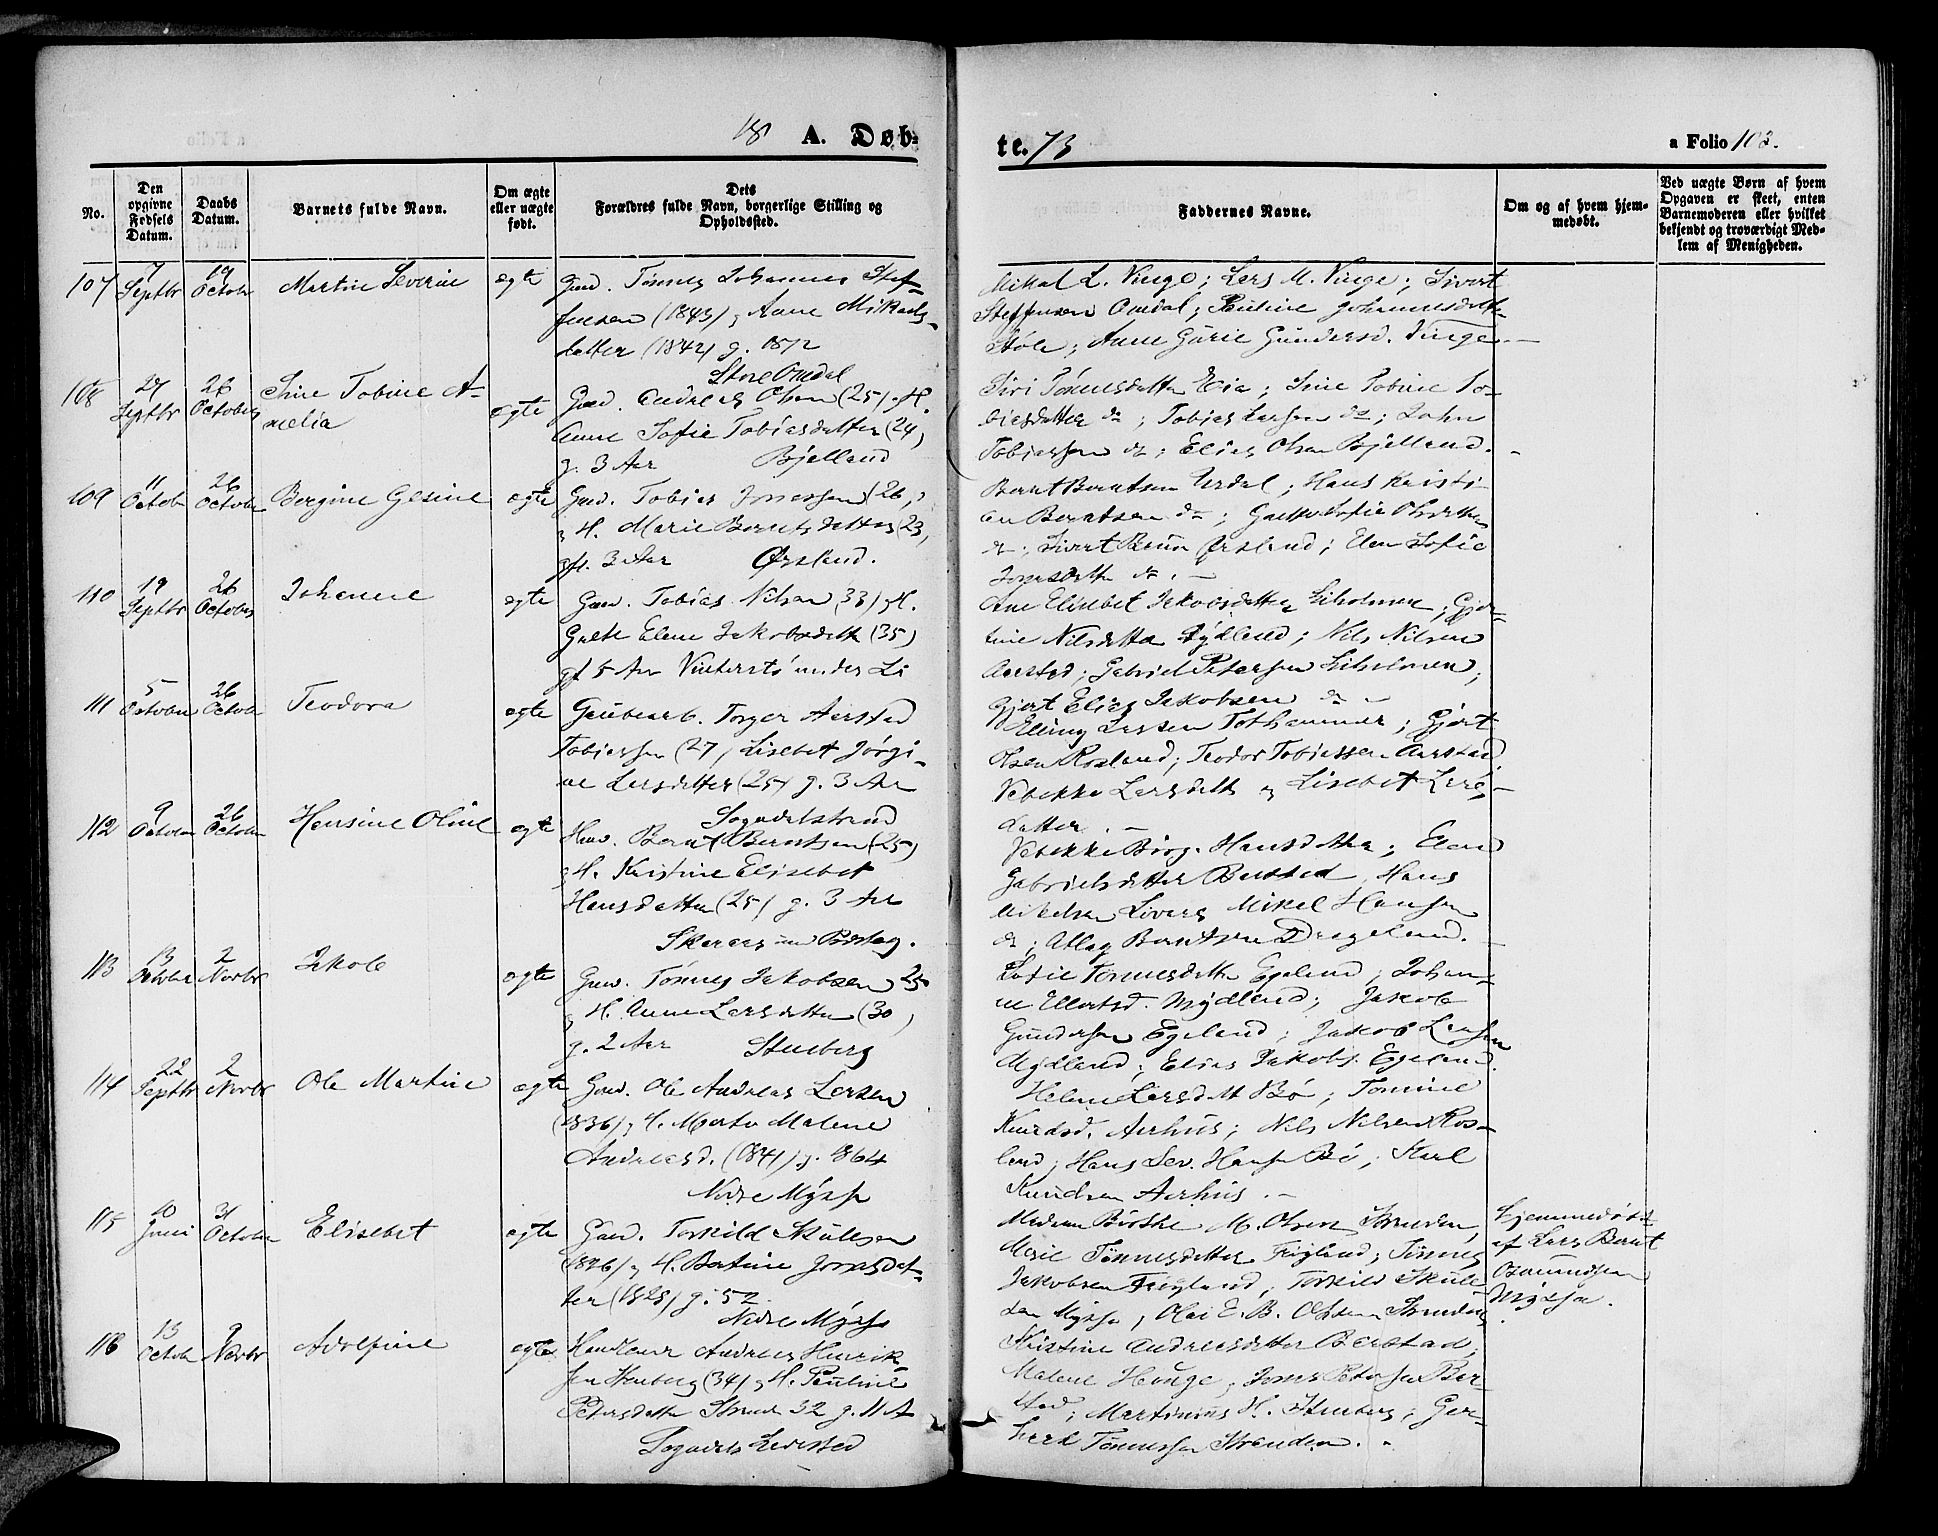 18 A. Døb-
te. 73
a Folio 103.
No.
Den opgivne Fødsels Datum.
Daabs Datum.
Barnets fulde Navn.
Om ægte eller uægte født.
Dets Forældres fulde Navn, borgerlige Stilling og Opholdssted.
Faddernes Navne.
Om og af hvem hjemmedøbt.
Ved uægte Børn af hvem Opgaven er skeet, enten Barnemoderen eller hvilket bekjendt og troværdigt Medlem af Menigheden.
107 7 Septbr 19 Octobr Martine Severine egte Gmd. Tønnes Johannes Stef-
fensen (1843) Anne Mikals-
datter (1842) g. 1872
Store Omdal
Mikal L. Vinge; Lars M. Vinge; Sivert
Steffensen Omdal; Pauline Johannesdatter
Støle; Anne Gurie Gundersd. Vinge.
108 27 Septbr 26 October Sine Tobine A-
melia egte Gmd. Andreas Olsen (25) H.
Anne Sofie Tobiasdatter (24)
g. 3 Aar Bjelland
Siri Tønnesdatter Eia; Sine Tobine To-
biasdatter do; Tobias Larsen do; John
Tobiassen do; Elias Olsen Bjelland.
109 11 Octobr 26 Octobr Bergine Gesine egte Gmd. Tobias Jonassen (26)
H. Marie Berntsdatter (23)
g. 3 Aar Ørsland.
Bernt Berntsen Urdal; Hans Kristi-
an Berntsen do; Sofie Olsdatter
do; Sivert Ørsland; Elen Sofie
Jonasdatter do.
110 19 Septbr 26 October Johanne egte Gmd. Tobias Nilsen (33) H.
Grete Elene Jakobsdatter (35)
g. 5 Aar
Ane Elisabet Jakobsdatter Liholmen; Gjer-
tine Nilsdatter Nydland; Nils Nilsen
Aarstad; Gabriel Petersen Liholmen;
Gjert Elias Jakobsen do
111 5 October 26 Octobr Teodora egte Grubearb. Torger Aarstad
Tobiassen (27) Lisebet Jørgi-
ne Larsdatter (25) g. 3 Aar
Sogndalstrand
Elling Larsen Tothammer; Gjert
Olsen Rosland; Teodor Tobiassen Aarstad,
Vebekke Larsdatter Lisebet Lars-
datter.
112 9 October 26 October Hansine Oline egte Hmd. Bernt Berntsen (25)
H. Kristine Elisebet
Hansdatter (25) g. 3 Aar
Vebekke Birg. Hansdatter; Elen
Gabrielsdatter Barstad, Hans
Mikelsen Mikel Hansen
do; Atlag Berntsen Drageland.
113 13 October 2 Novbr Jakob egte Gmd. Tønnes Jakobsen 25
H. Anne Larsdatter (30)
g. 2 Aar Stenberg
Sofie Tønnesdatter Egeland; Johan-
ne Ellertsd. Mydland; Jakob
Gundersen Egeland; Jakob Larsen
Mydland; Elias Jakobs. Egeland.
114 22 Septbr 2 Novbr Ole Martine egte Gmd. Ole Andreas Larsen
(1836) H. Marta Malene
Andreasd. (1841) g. 1864
Nedre Mysse
Helene Larsdatt Bø; Tomine
Knudsd. Aarhus; Nils Nilsen Ros-
land; Hans Sev. Hansen Bø; Karl
Knudsen Aarhus.
115 10 Juni 31 October Elisebet egte Gmd. Torkild Skulesen
(1826) H. Bertine Jonasdat-
ter (1828) g. 52.
Nedre Mysse
Madam M. Olsen Stranden,
Marie Tønnesdatter Frigland; Tønnes
Jakobsen Frigland; Torkild Skule-
sen Mysse; Olai E. B. Olsen Stranden
Hjemmedøbt
af Lars Bernt
Osmundsen
Mysse.
116 13 Octobr 9 Novbr Adolfine egte Andreas Henrik-
sen Stenberg (34) H. Pauline
Petersdatter Strand 32 g. 11 A
Sogndals Ladested
Kristine Andreasdatter Barstad,
Malene Hauge; Jonas Petersen Bar-
stad; Martinius H. Stenberg; Ger-
hard Tønnessen Stranden.